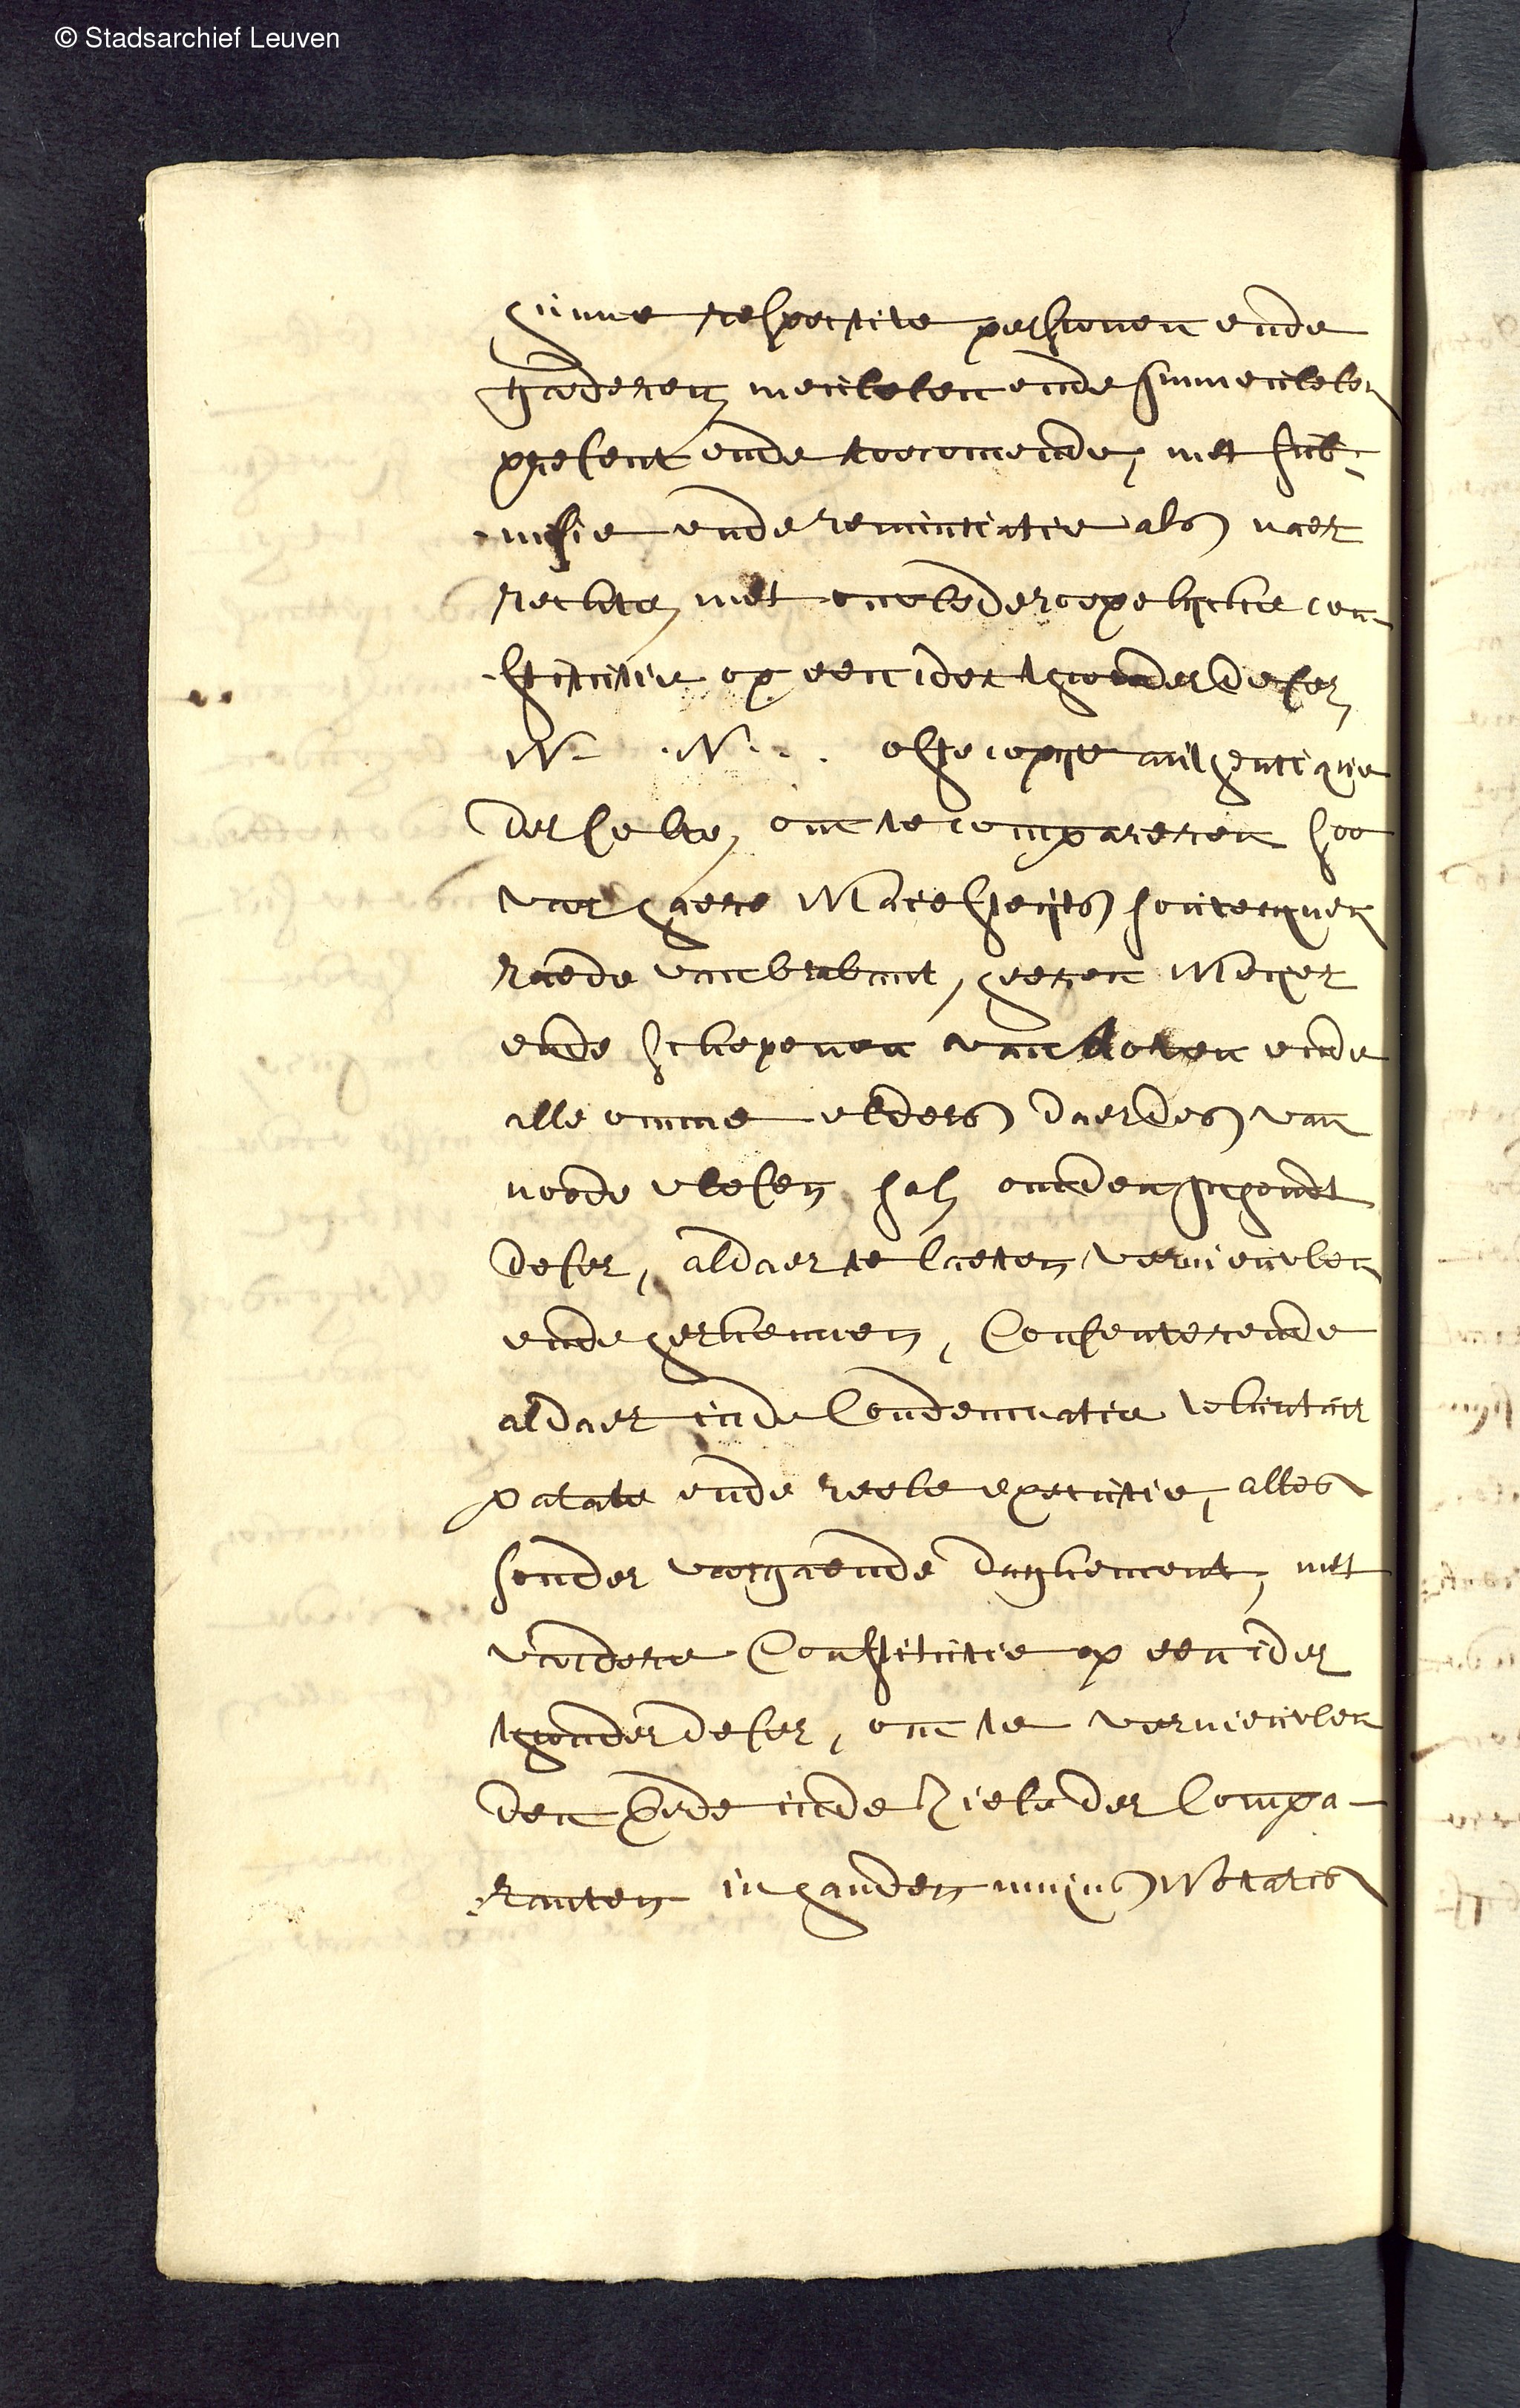 © Stadsarchief Leuven
hunne respective persoonen ende
goederen meubelen ende Immeubelen
present ende toecomende, met sub¬
missie ende renuntiatie als naer
rechte, met onwederroepelycke con¬
stitutie op een ider thoonder deser
N. N. ofte copye authentique
der selve, om te compareren soo
voor haere Maiesteyts souvereynen
raede van brabant, heeren Meyer
ende schepenen van Loven ende
alle omme elders daer des van
noode wesen sal, om den Inhoudt
deser, aldaer te laeten vernieuwen
ende herkennen, Consenterende
aldaer inde Condemnatie volontair
parate ende reele executie, alles
sonder voorgaende daghement, met
voordere Constitutie op een ider
thoonder deser, om te vernieuwen
den Eede inde Ziele der Compa-
ranten in handen mijns Notaris